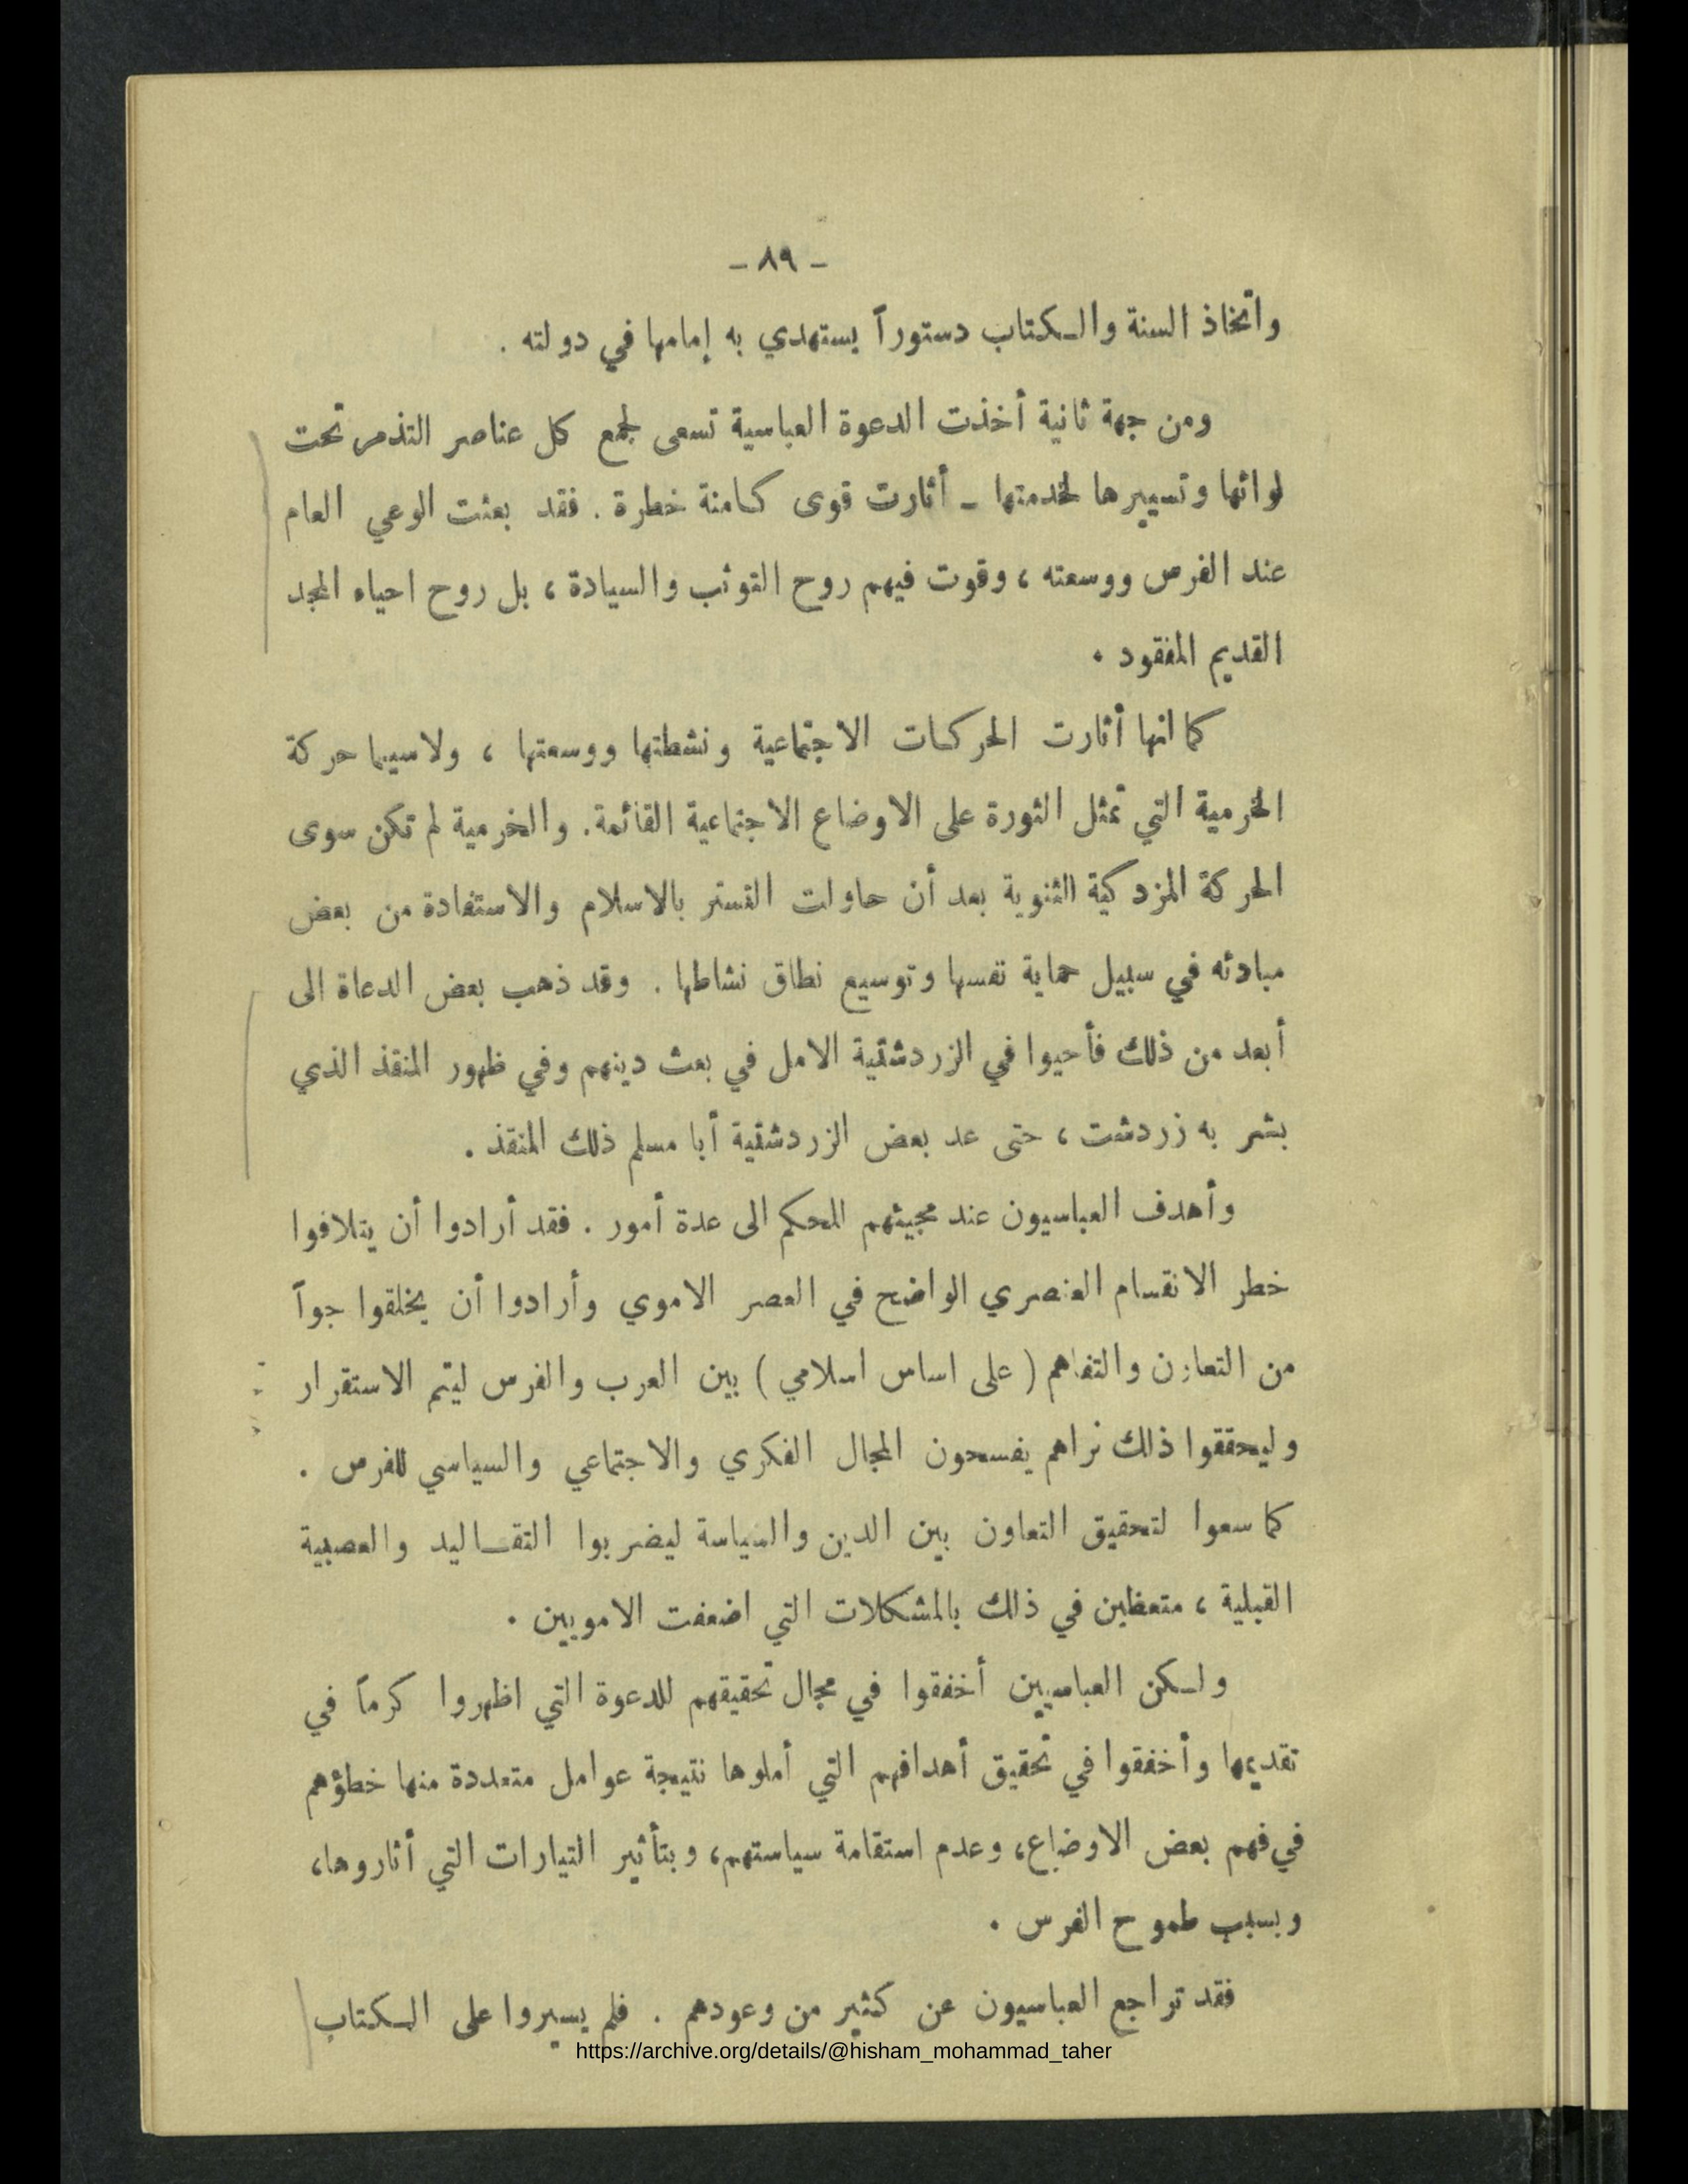 - ٨٩ -
واتخاذ السنة والكتاب دستوراً يستهدي به إمامها في دولته .
ومن جهة ثانية أخذت الدعوة العباسية تسعى لجمع كل عناصر التذمر تحت
لوائها وتسييرها لخدمتها - أثارت قوى كامنة خطرة . فقد بعثت الوعي العام
عند الفرس ووسعته ، وقوت فيهم روح التوثب والسيادة ، بل روح احياء المجد
القديم المفقود .
كما انها أثارت الحركات الاجتماعية ونشطتها ووسعتها ، ولاسيما حركة
الخرمية التي تمثل الثورة على الاوضاع الاجتماعية القائمة. والخرمية لم تكن سوى
الحركة المزدكية الثنوية بعد أن حاولت التستر بالاسلام والاستفادة من بعض
مبادئه في سبيل حماية نفسها وتوسيع نطاق نشاطها . وقد ذهب بعض الدعاة الى
أبعد من ذلك فأحيوا في الزردشتية الامل في بعث دينهم وفي ظهور المنقذ الذي
بشر به زردشت ، حتى عد بعض الزردشتية أبا مسلم ذلك المنقذ .
وأهدف العباسيون عند مجيئهم للحكم الى عدة أمور . فقد أرادوا أن يتلافوا
خطر الانقسام العنصري الواضح في العصر الاموي وأرادوا أن يخلقوا جواً
من التعاون والتفاهم ( على اساس اسلامي ) بين العرب والفرس ليتم الاستقرار
وليحققوا ذلك نراهم يفسحون المجال الفكري والاجتماعي والسياسي للفرس .
كما سعوا لتحقيق التعاون بين الدين والسياسة ليضربوا التقاليد والعصبية
القبلية ، متعظين في ذلك بالمشكلات التي اضعفت الامويين .
ولكن العباسيين أخفقوا في مجال تحقيقهم للدعوة التي اظهروا كرماً في
تقديمها وأخفقوا في تحقيق أهدافهم التي أملوها نتيجة عوامل متعددة منها خطؤهم
في فهم بعض الاوضاع، وعدم استقامة سياستهم، وبتأثير التيارات التي أثاروها،
وبسبب طموح الفرس .
فقد تراجع العباسيون عن كثير من وعودهم . فلم يسيروا على الكتاب
https://archive.org/details/@hisham_mohammad_taher